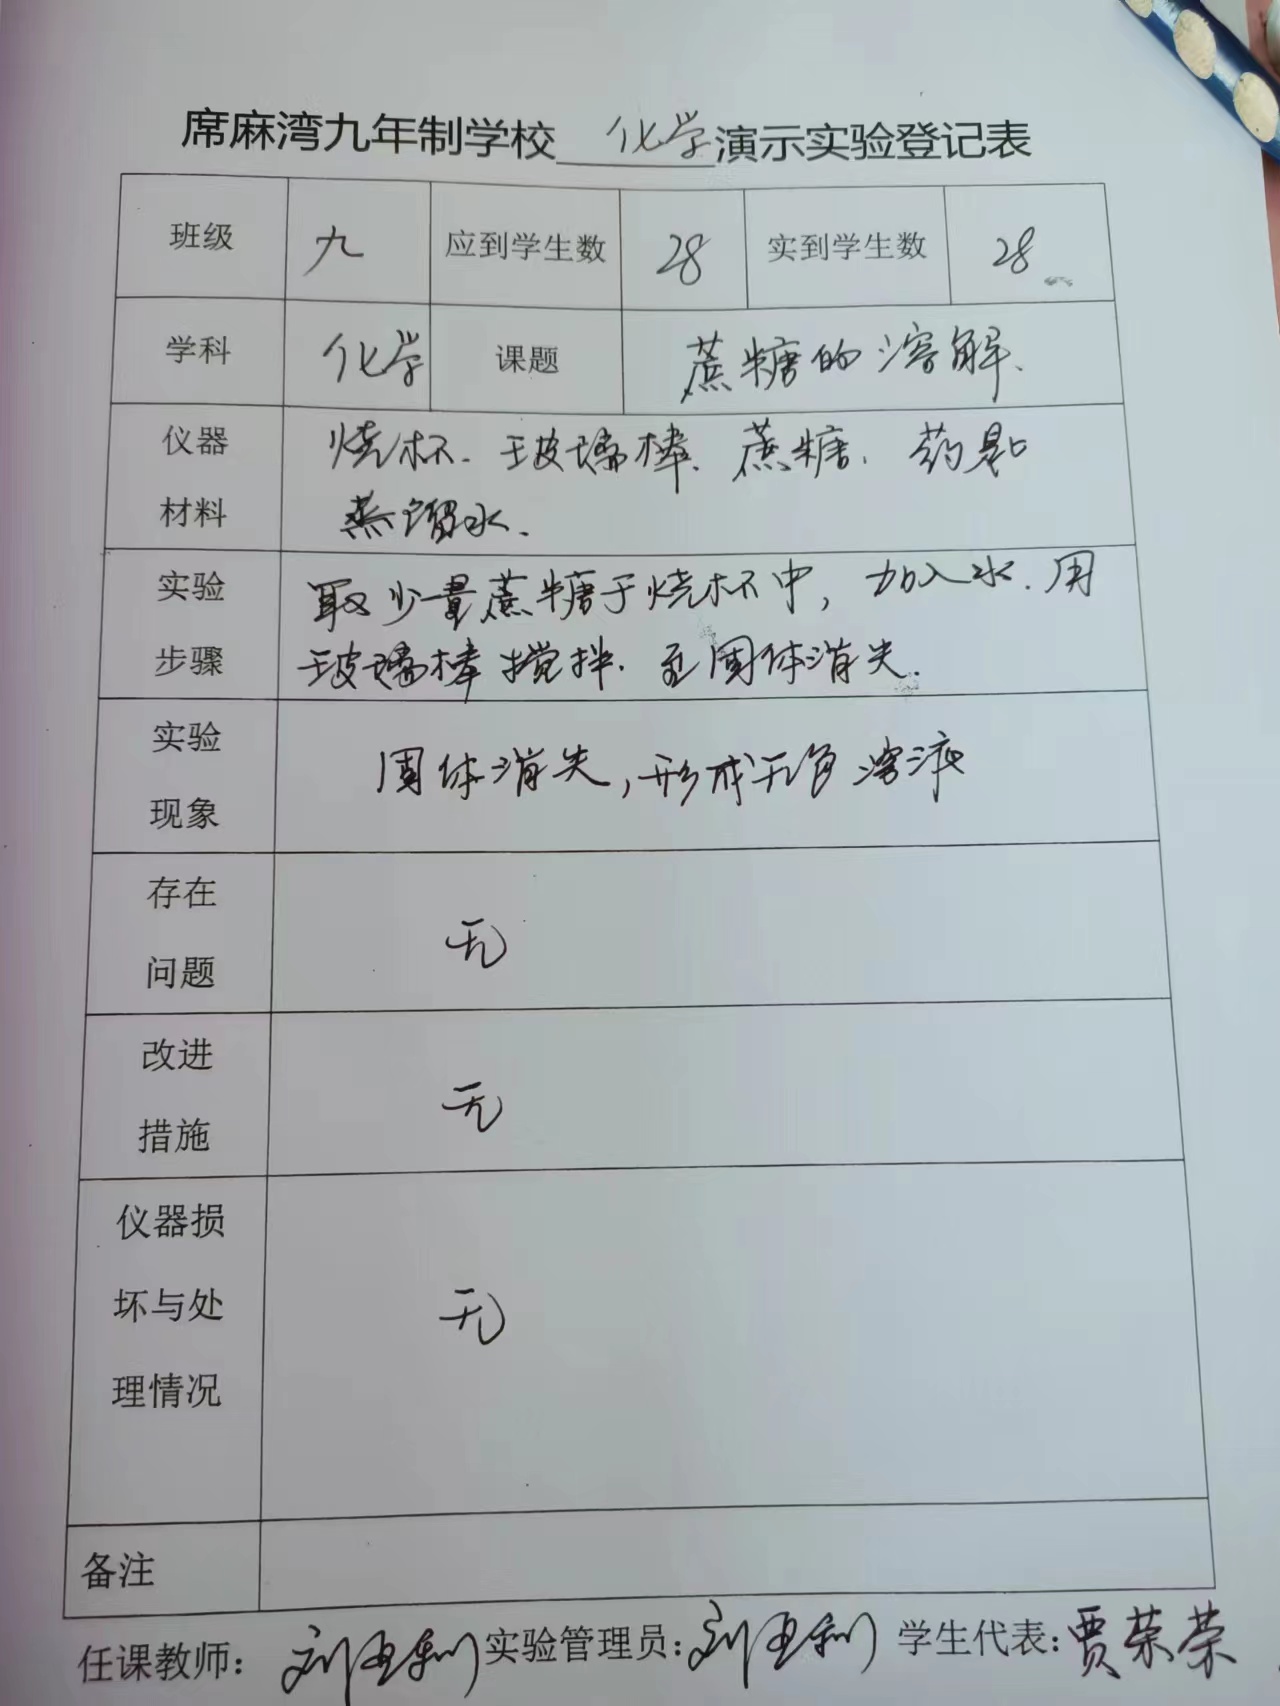 席麻湾九年制学校 化学 演示实验登记表
班级 九 应到学生数 28 实到学生数 28
学科 化学 课题 蔗糖的溶解.
仪器 烧杯. 玻璃棒. 蔗糖. 药匙
材料 蒸馏水.
实验 取少量蔗糖于烧杯中, 加入水. 用
步骤 玻璃棒搅拌. 至固体消失.
实验 固体消失, 形成无色溶液
现象
存在
问题 无
改进
措施 无
仪器损
坏与处 无
理情况
备注
任课教师: 刘 利 实验管理员: 刘 利 学生代表: 贾荣荣